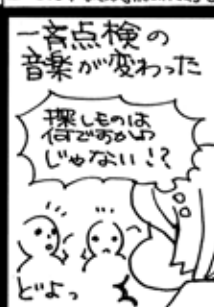 一斉点検の
音楽が変わった
探しものは
何ですかゆ
じゃない!?
どよっ